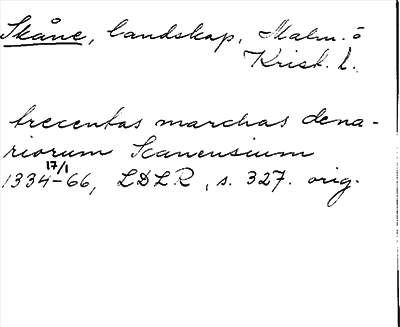 Skåne, landskap, Malm. o
Krist. l.
trecentas marchas dena-
riorum Scanensium
17/1
1334-66, LDLR, s. 327. orig.